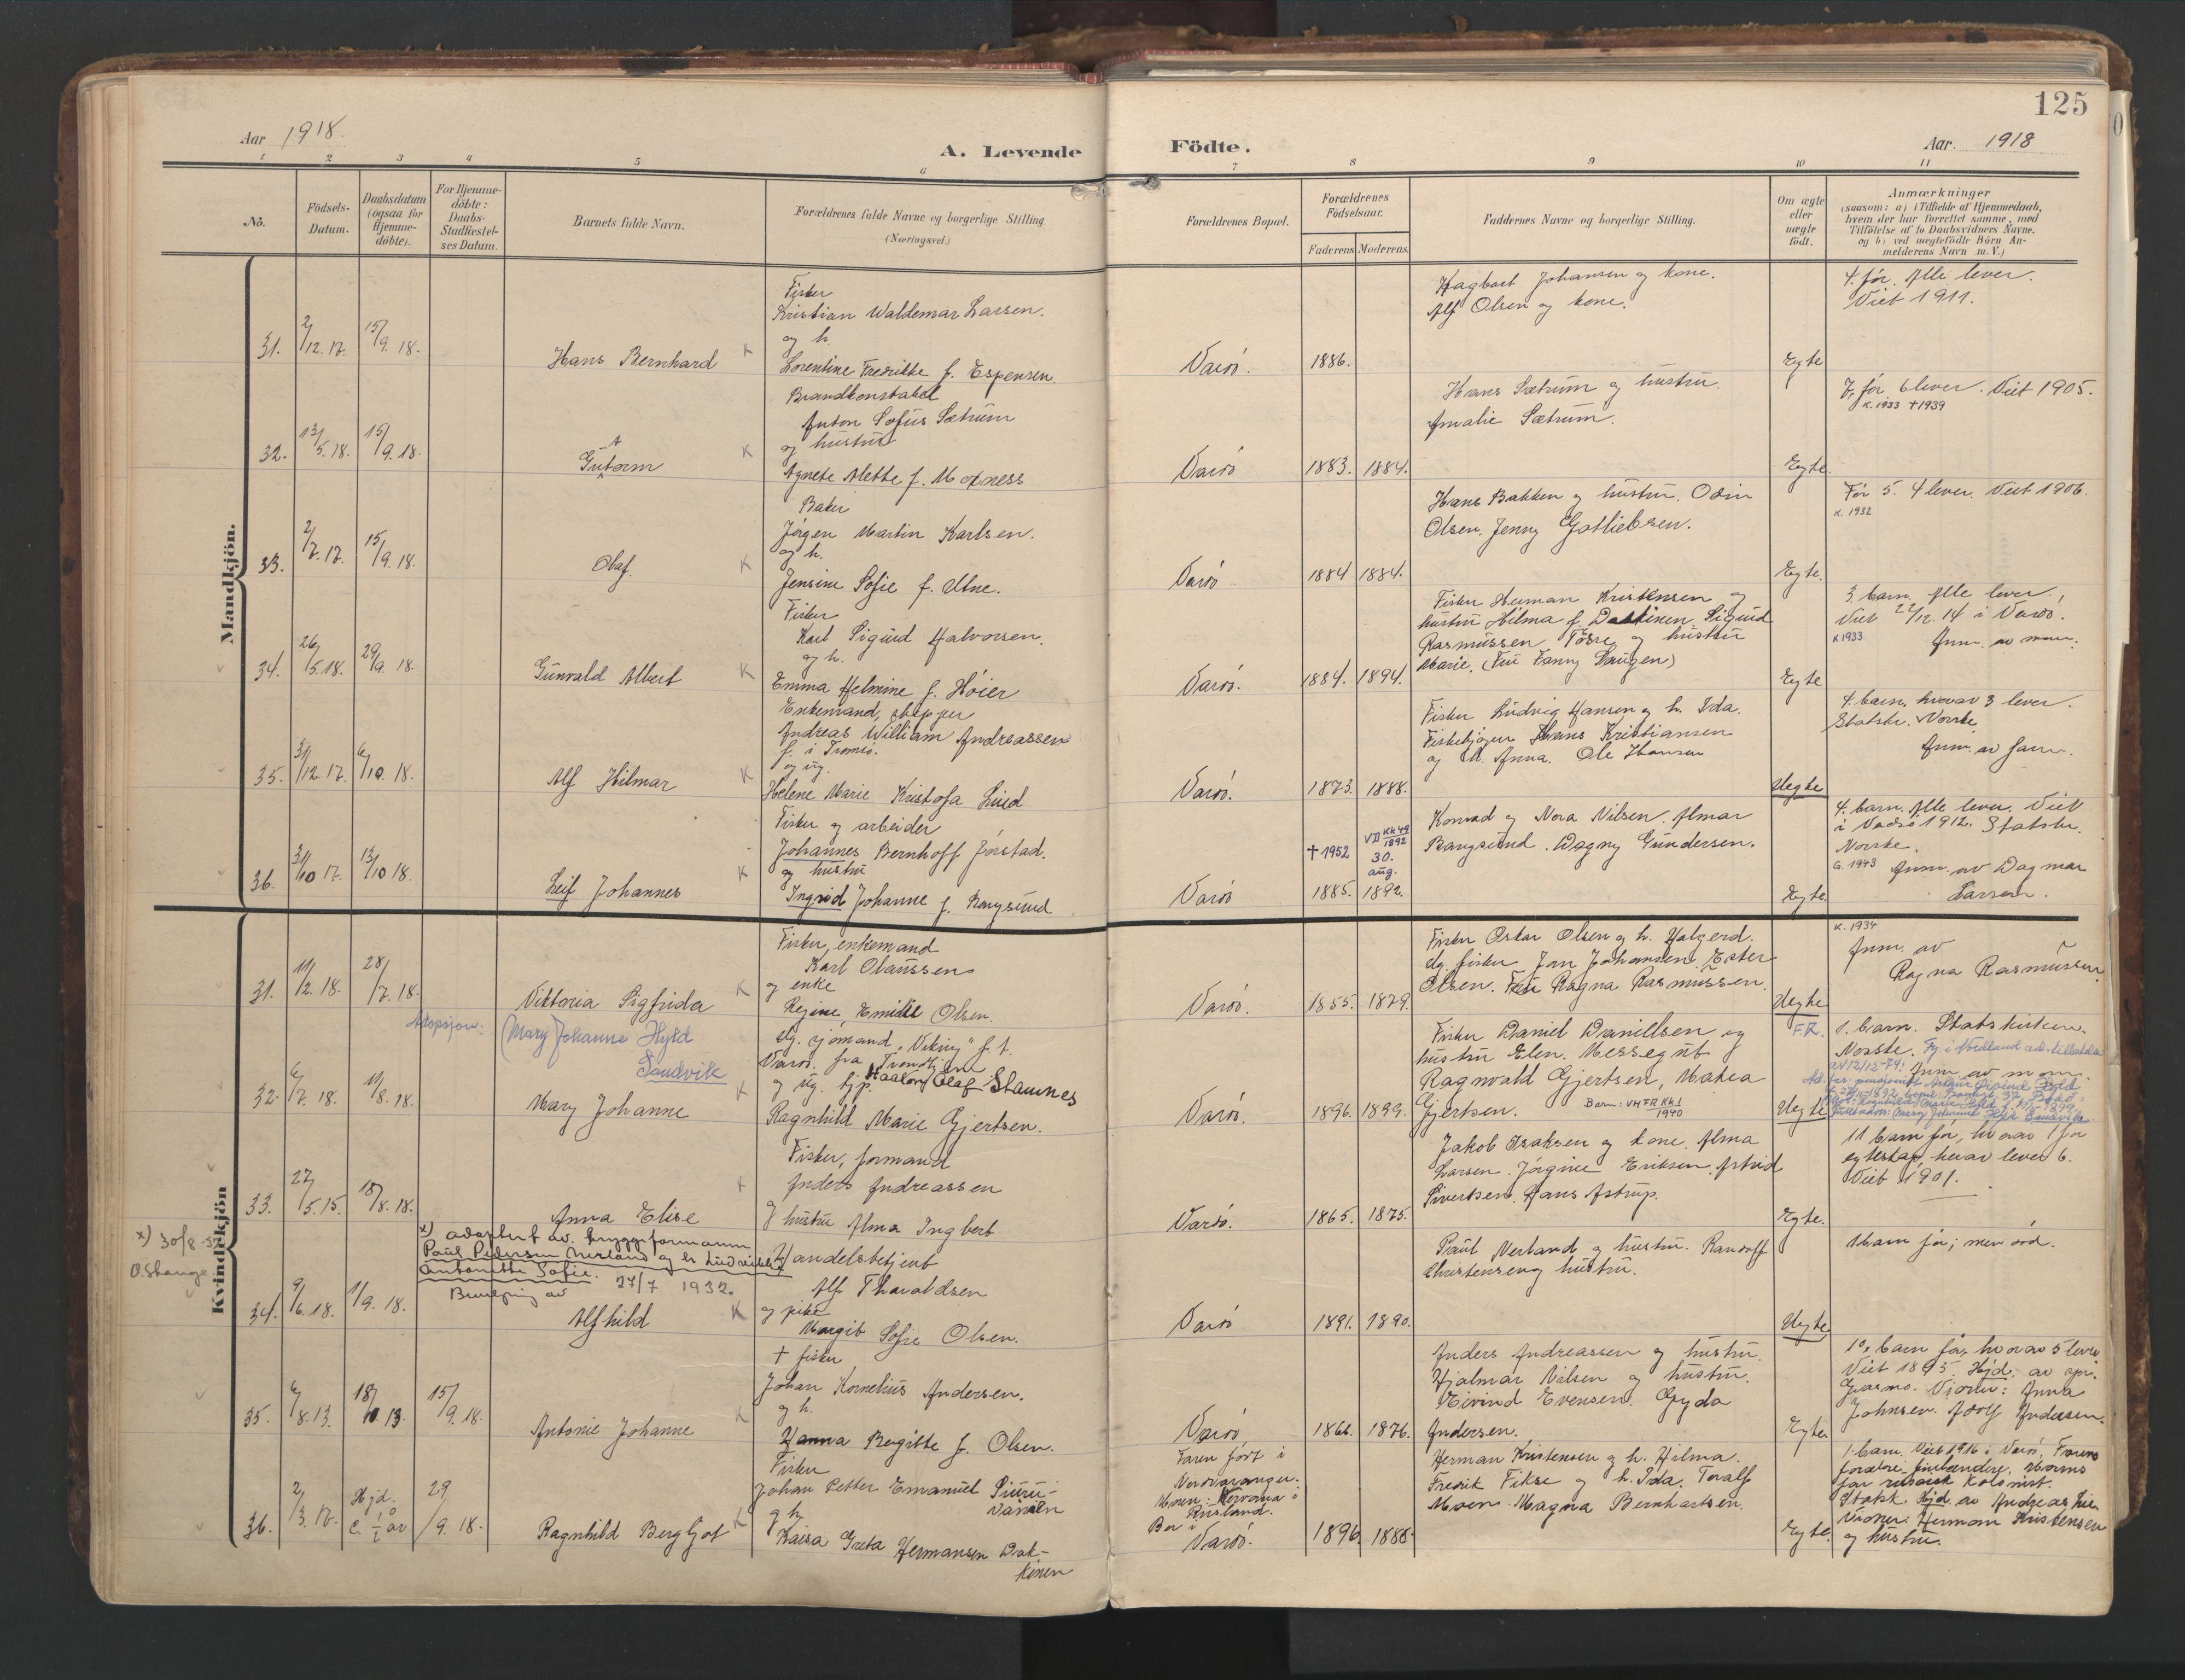 125
Aar 1918.
A. Levende Födte.
Aar. 1918
1 2 3 4 5 6 7 8 9 10 11
No.
Födsels-
Datum.
Daabsdatum
(ogsaa for
Hjemme-
döbte).
For Hjemme-
döbte:
Daabs-
Stadfæstel-
ses Datum.
Barnets fulde Navn.
Forældrenes fulde Navne og borgerlige Stilling
(Næringsvei.)
Forældrenes Bopæl.
Forældrenes
Födselsaar.
Faderens Moderens
Faddernes Navne og borgerlige Stilling.
Om ægte
eller
uægte
födt.
Anmærkninger
(saasom: a) i Tilfælde af Hjemmedaab,
hvem der har forrettet samme, med
Tilföielse af to Daabsvidners Navne.
og b) ved uægtefödte Börn An-
melderens Navn m. V.)
Mandkjön.
31. 2/12. 17. 15/9. 18.
Hans Bernhard K
Fisker
Kristian Waldemar Larsen.
og h.
Lorentine Fredrikke f. Espensen.
Vardö. 1886.
Hagbart Johansen og kone.
Alf Olsen og kone.
Egte
4. för. Alle lever.
Viet 1911.
32. 13/5. 18. 15/9. 18.
Gutorm K
Brandkonstabel
Anton Sofus Sætrum
og hustru
Agnete Mette f. Moxness
Vardö 1883. 1884.
Hans Sætrum og hustru.
Amalie Sætrum.
Egte
7. för 6 lever. Viet 1905.
K. 1933 †1939
33. 2/7. 17. 15/9. 18.
Olaf K
Baker
Jörgen Martin Karlsen.
og h.
Jensine Sofie f. Altne.
Vardö 1884 1884.
Hans Bakken og hustru. Odin
Olsen. Jenny Gotliebsen.
Egte.
För 5. 4 lever. Viet 1906.
K. 1932
34. 26/5. 18. 29/9. 18.
Gunvald Albert K
Fisker
Karl Sigurd Halvorsen.
og h.
Emma Helmine f. Höier
Vardö. 1884. 1894.
Fisker Herman Kristensen og
hustru Hilma f. Daskinen. Sigurd
Rasmussen Tösse og hustru
Marie. (Fru Fanny Haugen)
Egte
3. barn. Alle lever.
Viet 22/12. 14 i Vardö.
K 1933 Anm. av moren.
35. 31/12. 17. 6/10. 18.
Alf Hilmar K
Enkemand, skipper
Andreas William Andreassen
f. i Tromsö.
og ug.
Helene Marie Kristofa Lund
Vardö. 1873. 1888.
Fisker Ludvig Hansen og h. Ida.
Fiskekjöper Hans Kristiansen
og h. Anna. Ole Hansen
Uegte
4. barn, hvorav 3 lever.
Statsk. Norske
Anm. av faren.
36. 31/10 17. 13/10 18.
Leif Johannes K
Fisker og arbeider
Johannes Bernhoff Jörstad.
og hustru
Ingrid Johanne f. Bangsund
Vardö † 1952 1885. 1892.
VD Kk 49/1892
30.
aug.
Konrad og Nora Nilsen. Almar
Bangsund. Dagny Gundersen.
Egte.
4. barn. Alle lever. Viet
i Vadsö 1912. Statsk.
Norske.
G. 1943 Anm. av Dagmar
Larsen.
Kvindekjön
31. 11/2. 18. 28/7. 18.
Viktoria Sigfrida K
Fisker, enkemand
Karl Olaussen
og enke
Regine Emilie Olsen.
Vardö. 1855. 1879.
Fisker Oskar Olsen og h. Halgerd.
Ug. fisker Jan Johansen. Ester
Olsen. Fru Ragna Rasmussen.
Uegte
K. 1934
Anm. av
Ragna Rasmussen
Adopsjon:
(Mary Johanne Hyld
Sandvik
32. 6/7. 18. 11/8. 18.
Mary Johanne K
Ug. sjömand "Viking" f. t.
Vardö. fra Trondhjem
Haakon Olaf Stamnes
og ug. hjp.
Ragnhild Marie Gjertsen.
Vardö. 1896. 1899.
Fisker Daniel Daniellsen og
hustru Elen. Messegut
Ragnvald Gjertsen, Matea
Gjertsen. Barn: VHFR Kk.1/1940
F.R.
Uegte
1. barn. Statskirken.
Norske. Fy. i Nordland ad. tillatelse
av 12/12-74: Anm. av mor.
33. 27/5. 15. 18/8. 18.
Anna Elise
Fisker, formand
Anders Andreassen
og hustru Alma Ingbert
Vardö. 1865. 1875.
Jakob Isaksen og kone. Alma
Larsen. Jörgine Eriksen. Astrid
Sivertsen. Hans Astrup.
Egte.
11 barn för, hvorav 1 för
egteskap, herav lever 6.
Viet 1901.
x) 30/8-32
O. Stange
x) adoptert av bryggeformann
Paul Pedersen Nerland og h. hustru
Antonette Sofie.
Bevilgning av 27/7 1932.
34. 9/6. 18. 1/9. 18.
Alfhild K
Handelsbetjent
Alf Thoraldsen
og pike
Margit Sofie Olsen.
Vardö 1891. 1890.
Paul Nerland og hustru. Randolf
Christensen og hustru.
Uegte
1 barn för; men död.
35. 6/8. 13. 18/10. 13. 15/9. 18.
Antonie Johanne K
† fisker
Johan Kornelius Andersen.
og h.
Hanna Bergitte f. Olsen.
Vardö 1866. 1876.
Anders Andreassen og hustru.
Hjalmar Nilsen og hustru.
Eivind Evensen. Gyda
Andersen.
Egte
10. barn för, hvorav 5 lever
Viet 1895. Hjd. av spr.
Gjasmo. Vidner: Anna
Johnsen. Adolf Andersen.
36. 2/3. 17. Hjd.
c. 1/2 år 29/9. 18.
Ragnhild Bergljot K
Fisker
Johan Petter Emanuel Siuru-
vainen
og h.
Kaisa Greta Hermansen Dak-
kinen
Faren född i
Nordvaranger.
Moren: Kervana i
Rusland.
Bor i
Vardö. 1896. 1888.
Herman Kristensen og h. Hilma.
Fredrik Fikse og h. Ida. Toralf
Moen. Magna Bernhartsen.
Egte.
1. barn. Viet 1916 i Vardö. Farens
foreldre finlændere. Morens
far russisk kolonist.
Statsk. Hjd. av Andreas Lie.
Vidner: Herman Kristensen
og hustru.